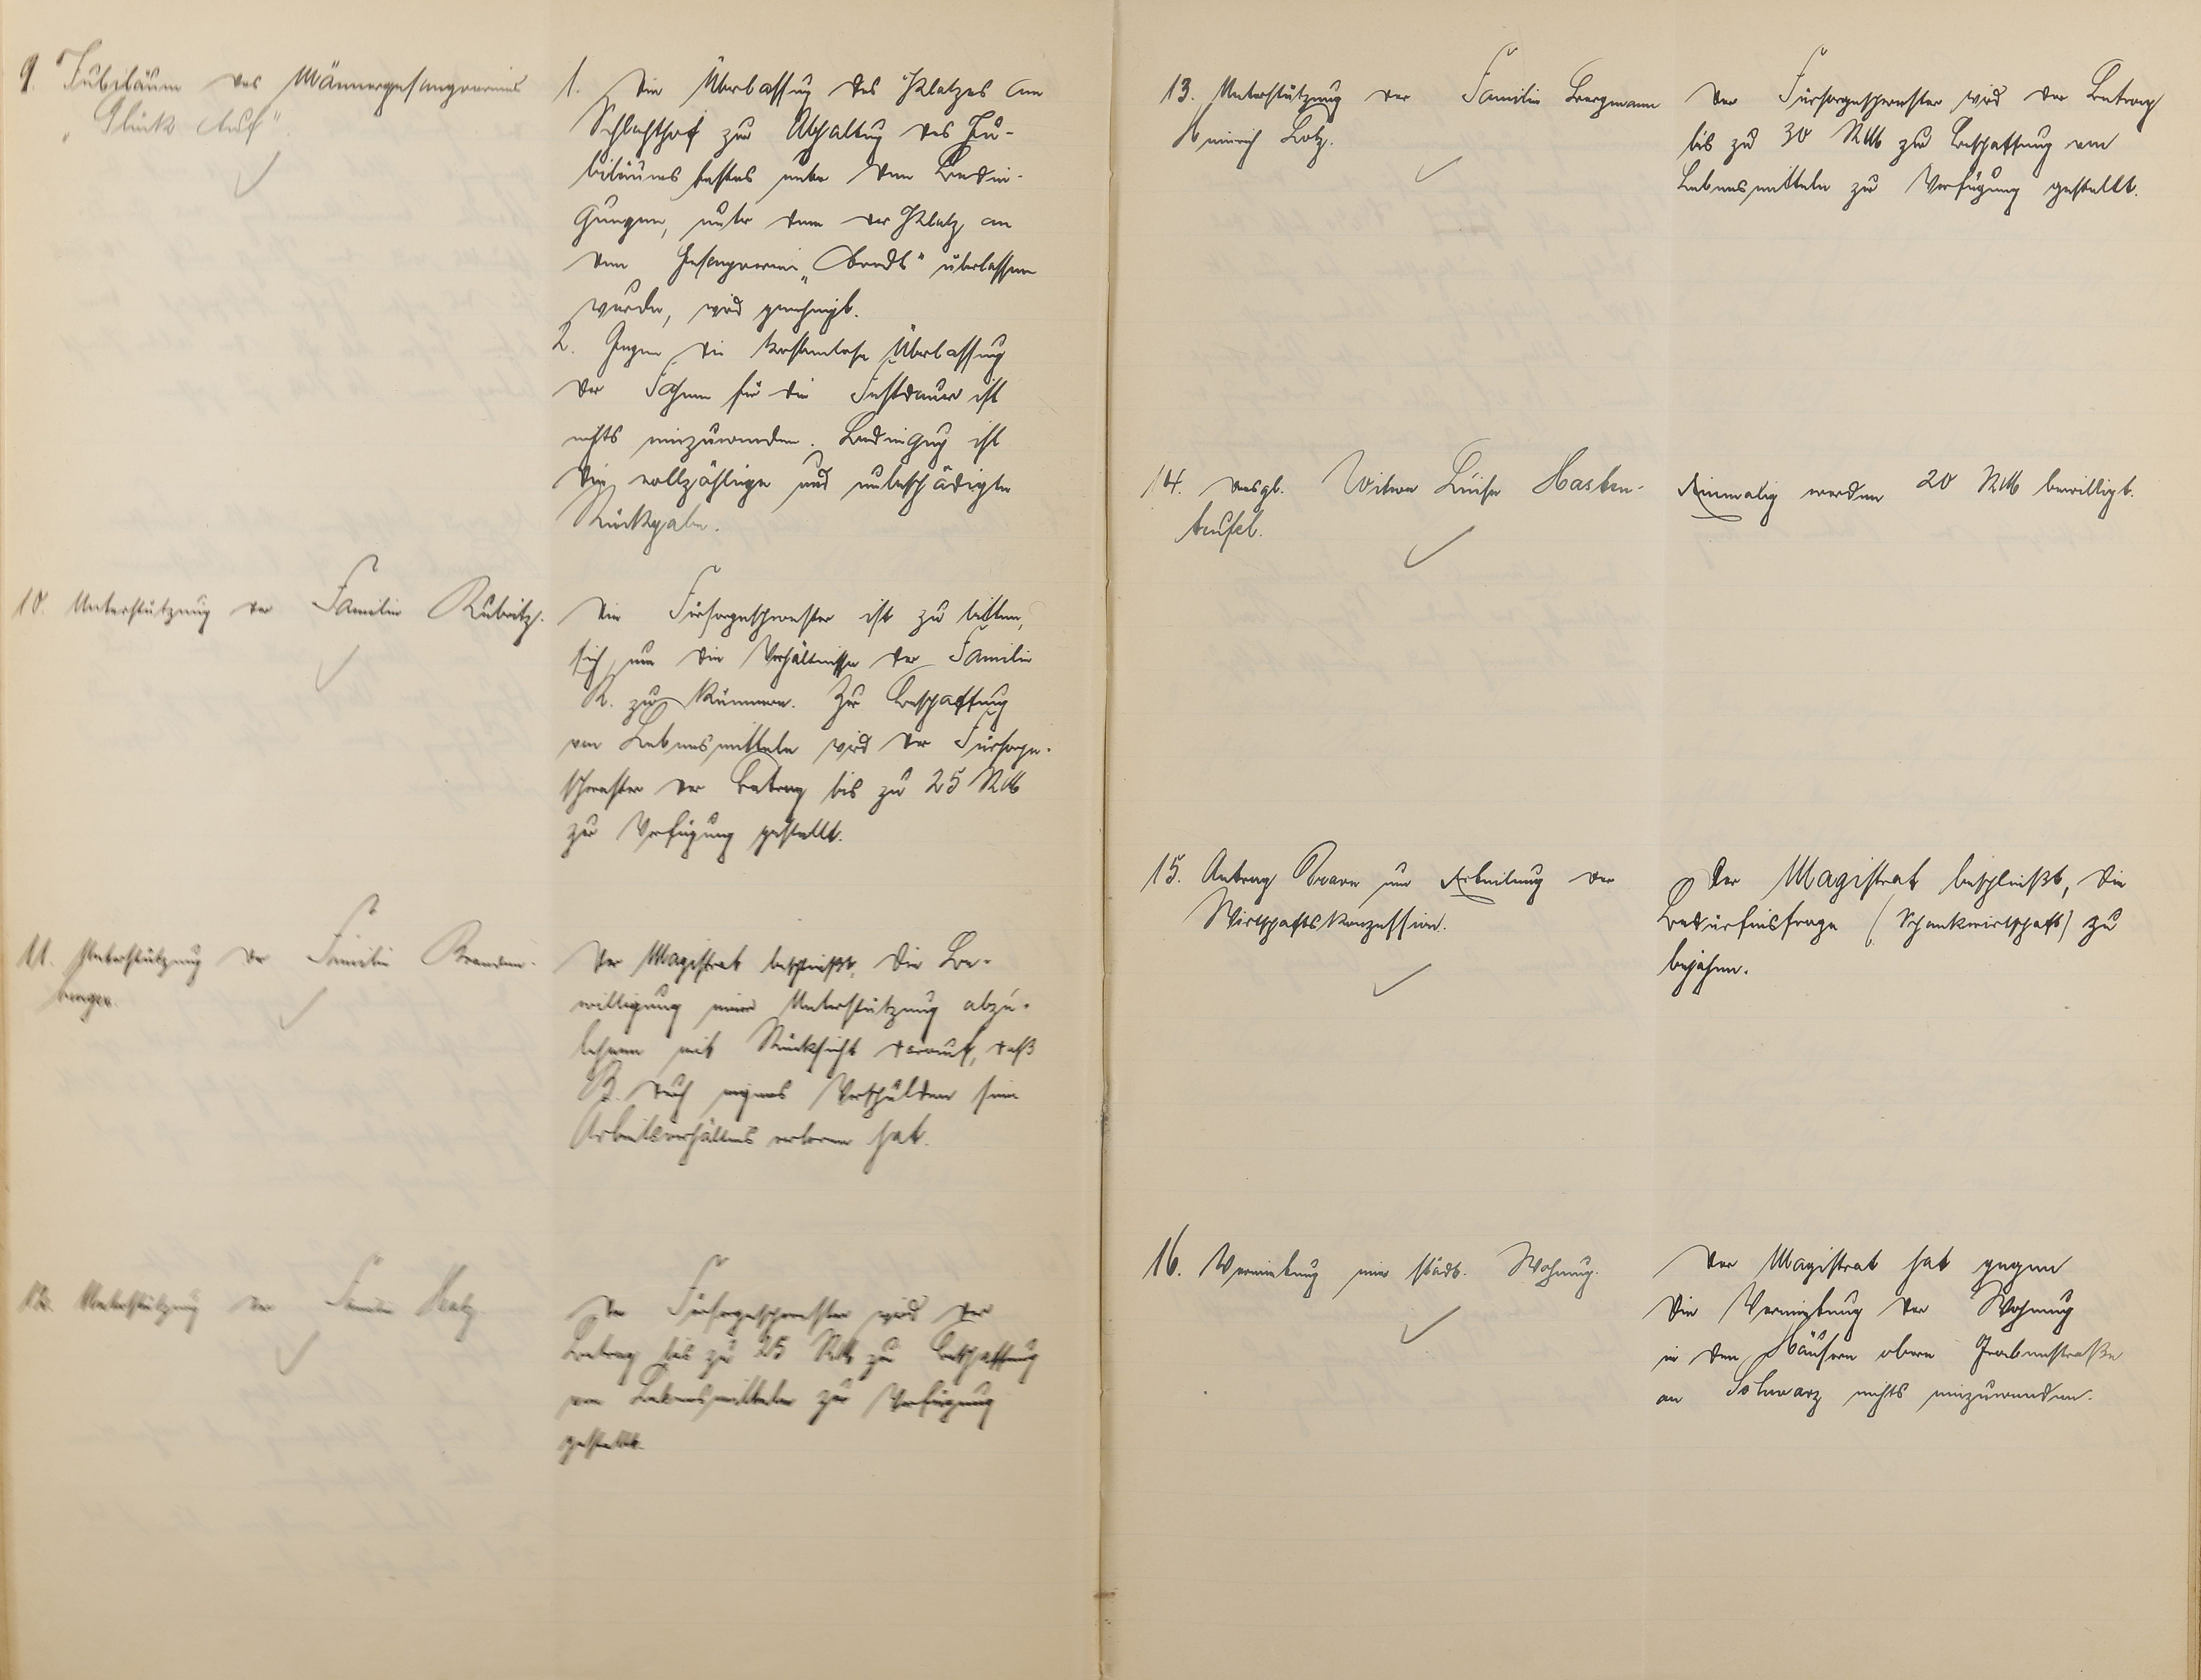 9. Jubiläum des Männergesangvereins
„Glück Auf".
1. Die Überlassung des Platzes am
Schlachthof zur Abhaltung des Ju-
biläumsfestes unter den Bedin-
gungen, unter denen der Platz an
den Gesangverein „ " überlassen
wurde, wird genehmigt.
2. Gegen die kostenlose Überlassung
der Fahnen für die Festdauer ist
nichts einzuwenden. Bedingung ist
die vollzählige und unbeschädigte
Rückgabe.
10. Unterstützung der Familie Kubritz.
Die Fürsorgeschwester ist zu bitten,
sich um die Verhältnisse der Familie
K. zu kümmern. Zur Beschaffung
von Lebensmitteln wird der Fürsorge-
schwester der Betrag bis zu 25 RM
zur Verfügung gestellt.
11. Unterstützung der Familie
Der Magistrat beschließt, die Be-
willigung einer Unterstützung abzu-
lehnen mit Rücksicht darauf, daß
B. durch eigenes Verschulden sein
Arbeitsverhältnis verloren hat.
12. Unterstützung der Familie
Der Fürsorgeschwester wird der
Betrag bis zu 25 RM zur Beschaffung
von Lebensmitteln zur Verfügung
gestellt.
13. Unterstützung der Familie Bergmann
Heinrich Lotz.
Der Fürsorgeschwester wird der Betrag
bis zu 30 RM zur Beschaffung von
Lebensmitteln zur Verfügung gestellt.
14. desgl. Witwe Luise Hasten-
teufel.
Einmalig werden 20 RM bewilligt.
15. Antrag um Erteilung der
Wirtschaftskonzession.
Der Magistrat beschließt, die
Bedürfnisfrage (Schankwirtschaft) zu
bejahen.
16. Vermietung einer städt. Wohnung.
Der Magistrat hat gegen
die Vermietung der Wohnung
in den Häusern obere Grabenstraße
an Schwarz nichts einzuwenden.